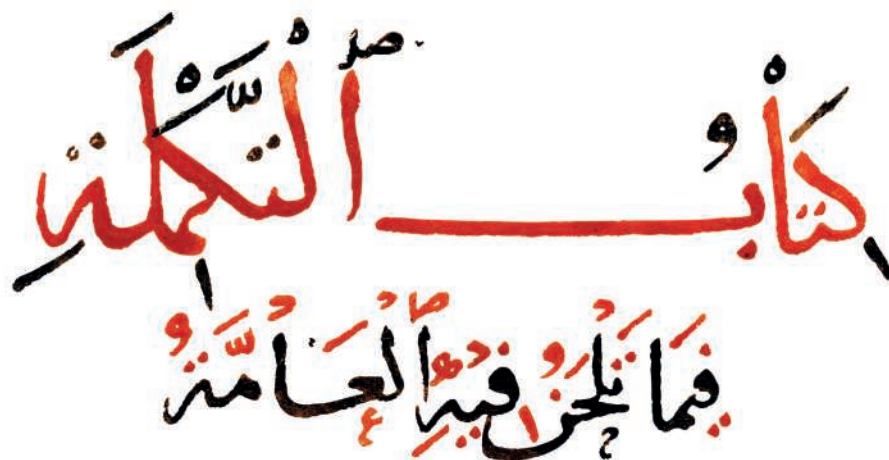 كِتَابُ ٱلْتَّكْمِلَةِ
فِيمَا تَلْحَنُ فِيهِ ٱلْعَامَّةُ